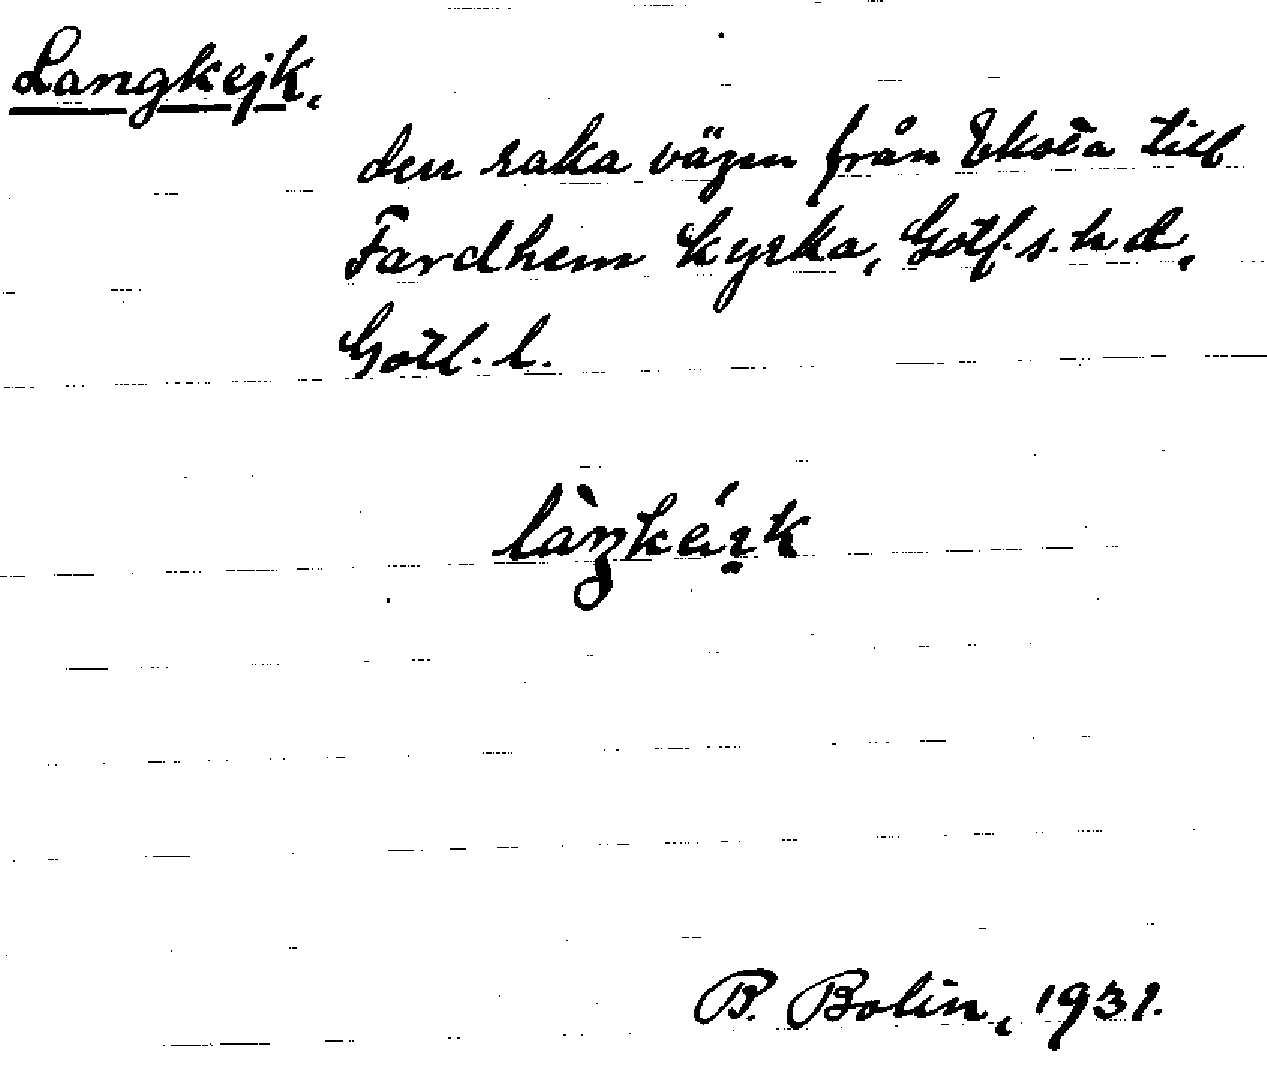 Langkejk.
den raka vägen från Ekosta till
Fardhem kyrka, Gotl. s. hd,
Gotl. l.
B. Bolin, 1931.